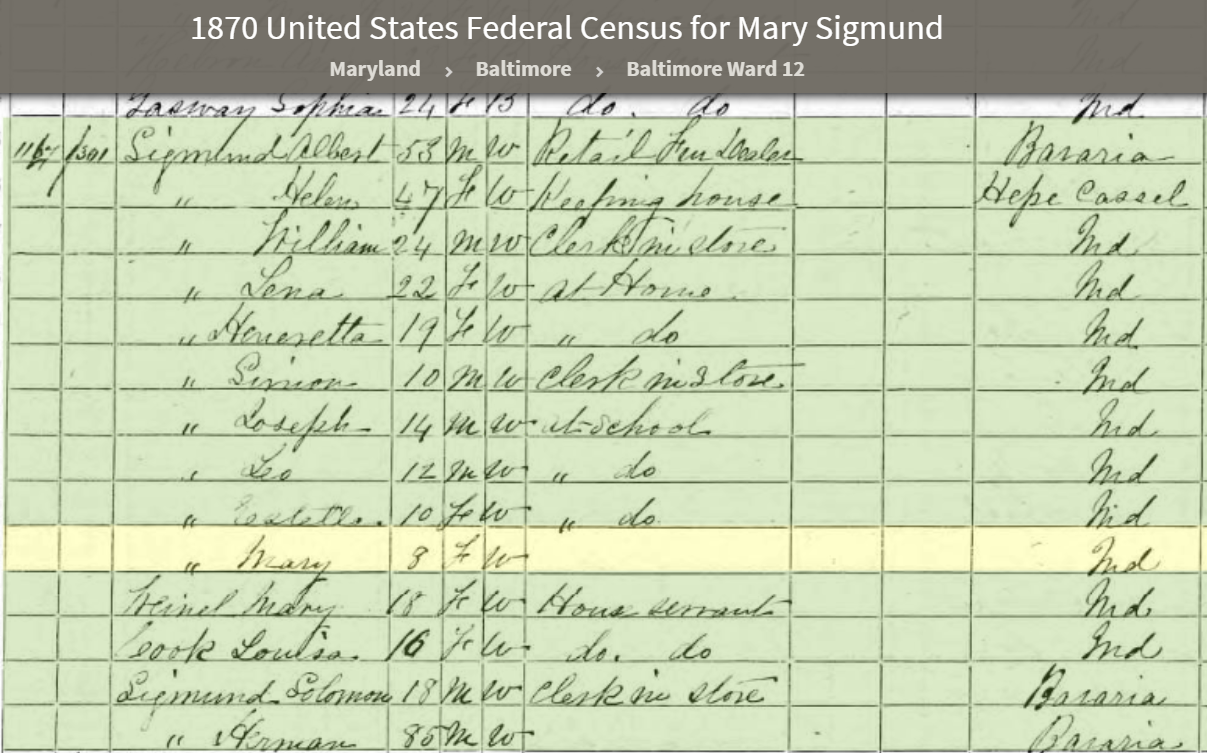 1870 United States Federal Census for Mary Sigmund
Maryland › Baltimore › Baltimore Ward 12
Sophia 24 F B do. do Md
1301 Sigmund Albert 53 M W Retail Fur Dealer Bavaria
" Helen 47 F W Keeping house Hepe Cassel
" William 24 M W Clerk in store Md
" Lena 22 F W at Home Md
" Heneretta 19 F W " do Md
" Simon 10 M W Clerk in Store Md
" Joseph 14 M W at School Md
" Leo 12 M W " do Md
" 10 F W " do Md
" Mary 8 F W Md
Mary 18 F W House servant Md
Cook Louisa 16 F W do. do Md
Sigmund Solomon 18 M W Clerk in store Bavaria
" Herman 85 M W Bavaria